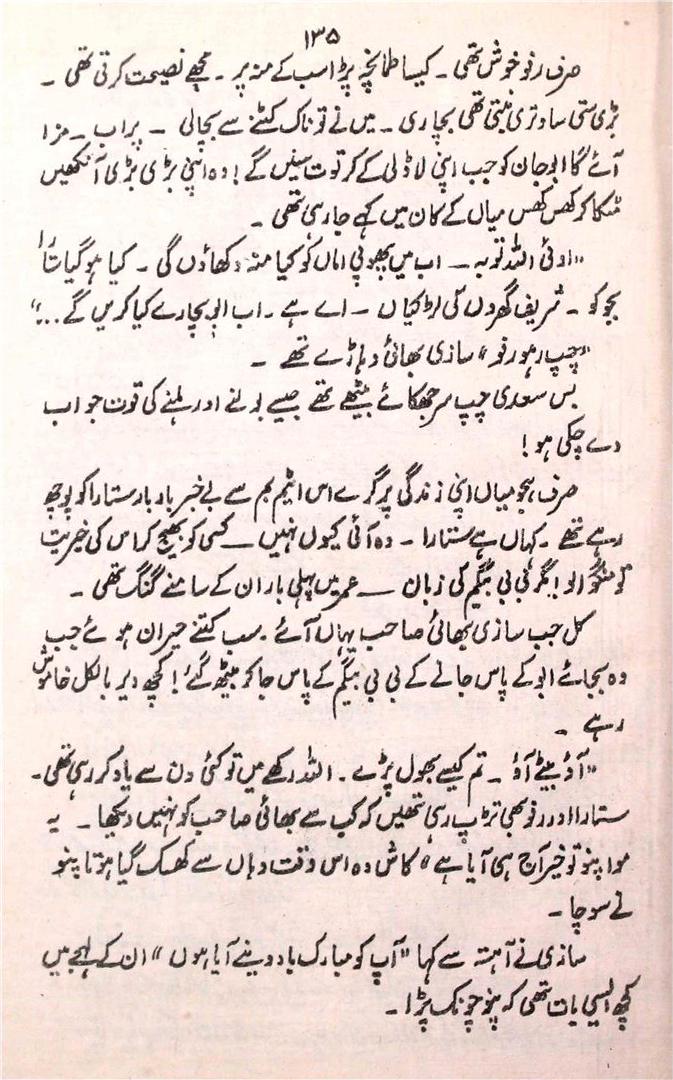 ۱۳۵
صرف رفو خوش تھی ۔ کیسا طمانچہ پڑا سب کے منہ پر ۔ مجھے نصیحت کرتی تھی ۔
بڑی ستی ساوتری بنتی تھی بچاری ۔ میں نے تو ناک کٹنے سے بچالی ۔ پر اب ۔ مزا
آئے گا ابو جان کو جب اپنی لاڈلی کے کرتوت سنیں گے! وہ اپنی بڑی بڑی آنکھیں
مٹکا کر کھس کھس میاں کے کان میں کہے جا رہی تھی ۔
"اوئی اللہ توبہ ۔ اب میں پھوپی اماں کو کیا منہ دکھاؤں گی ۔ کیا ہو گیا ستارا
بجو کو ۔ شریف گھروں کی لڑکیاں ۔ اے ہے ۔ اب ابو بچارے کیا کریں گے ...."
"چپ رہو رفو" سازی بھائی دہاڑے تھے ۔
بس سعدی چپ سر جھکائے بیٹھے تھے جیسے بولنے اور ہلنے کی قوت جواب
دے چکی ہو!
صرف بجو میاں اپنی زندگی پر گرے اس ایٹم بم سے بے خبر بار بار ستارا کو پوچھ
رہے تھے ۔ کہاں ہے ستارا ۔ وہ آئی کیوں نہیں ۔ کسی کو بھیج کر اس کی خیریت
تو منگوالو! مگر بی بی بیگم کی زبان ۔ عمر میں پہلی بار ان کے سامنے گنگ تھی ۔
کل جب سازی بھائی صاحب یہاں آئے ۔ سب کتنے حیران ہوئے جب
وہ بجائے ابو کے پاس جانے کے بی بی بیگم کے پاس جا کر بیٹھ گئے! کچھ دیر بالکل خاموش
رہے ۔
"آؤ بیٹے آؤ ۔ تم کیسے بھول پڑے ۔ اللہ رکھے میں تو کئی دن سے یاد کر رہی تھی ۔
ستارا اور رفو بھی تڑپ رہی تھیں کہ کب سے بھائی صاحب کو نہیں دیکھا ۔ یہ
موا پنو تو خیر آج ہی آیا ہے" کاش وہ اس وقت وہاں سے کھسک گیا ہوتا پنو
نے سوچا ۔
سازی نے آہستہ سے کہا "آپ کو مبارک باد دینے آیا ہوں" ان کے لہجے میں
کچھ ایسی بات تھی کہ پنو چونک پڑا ۔